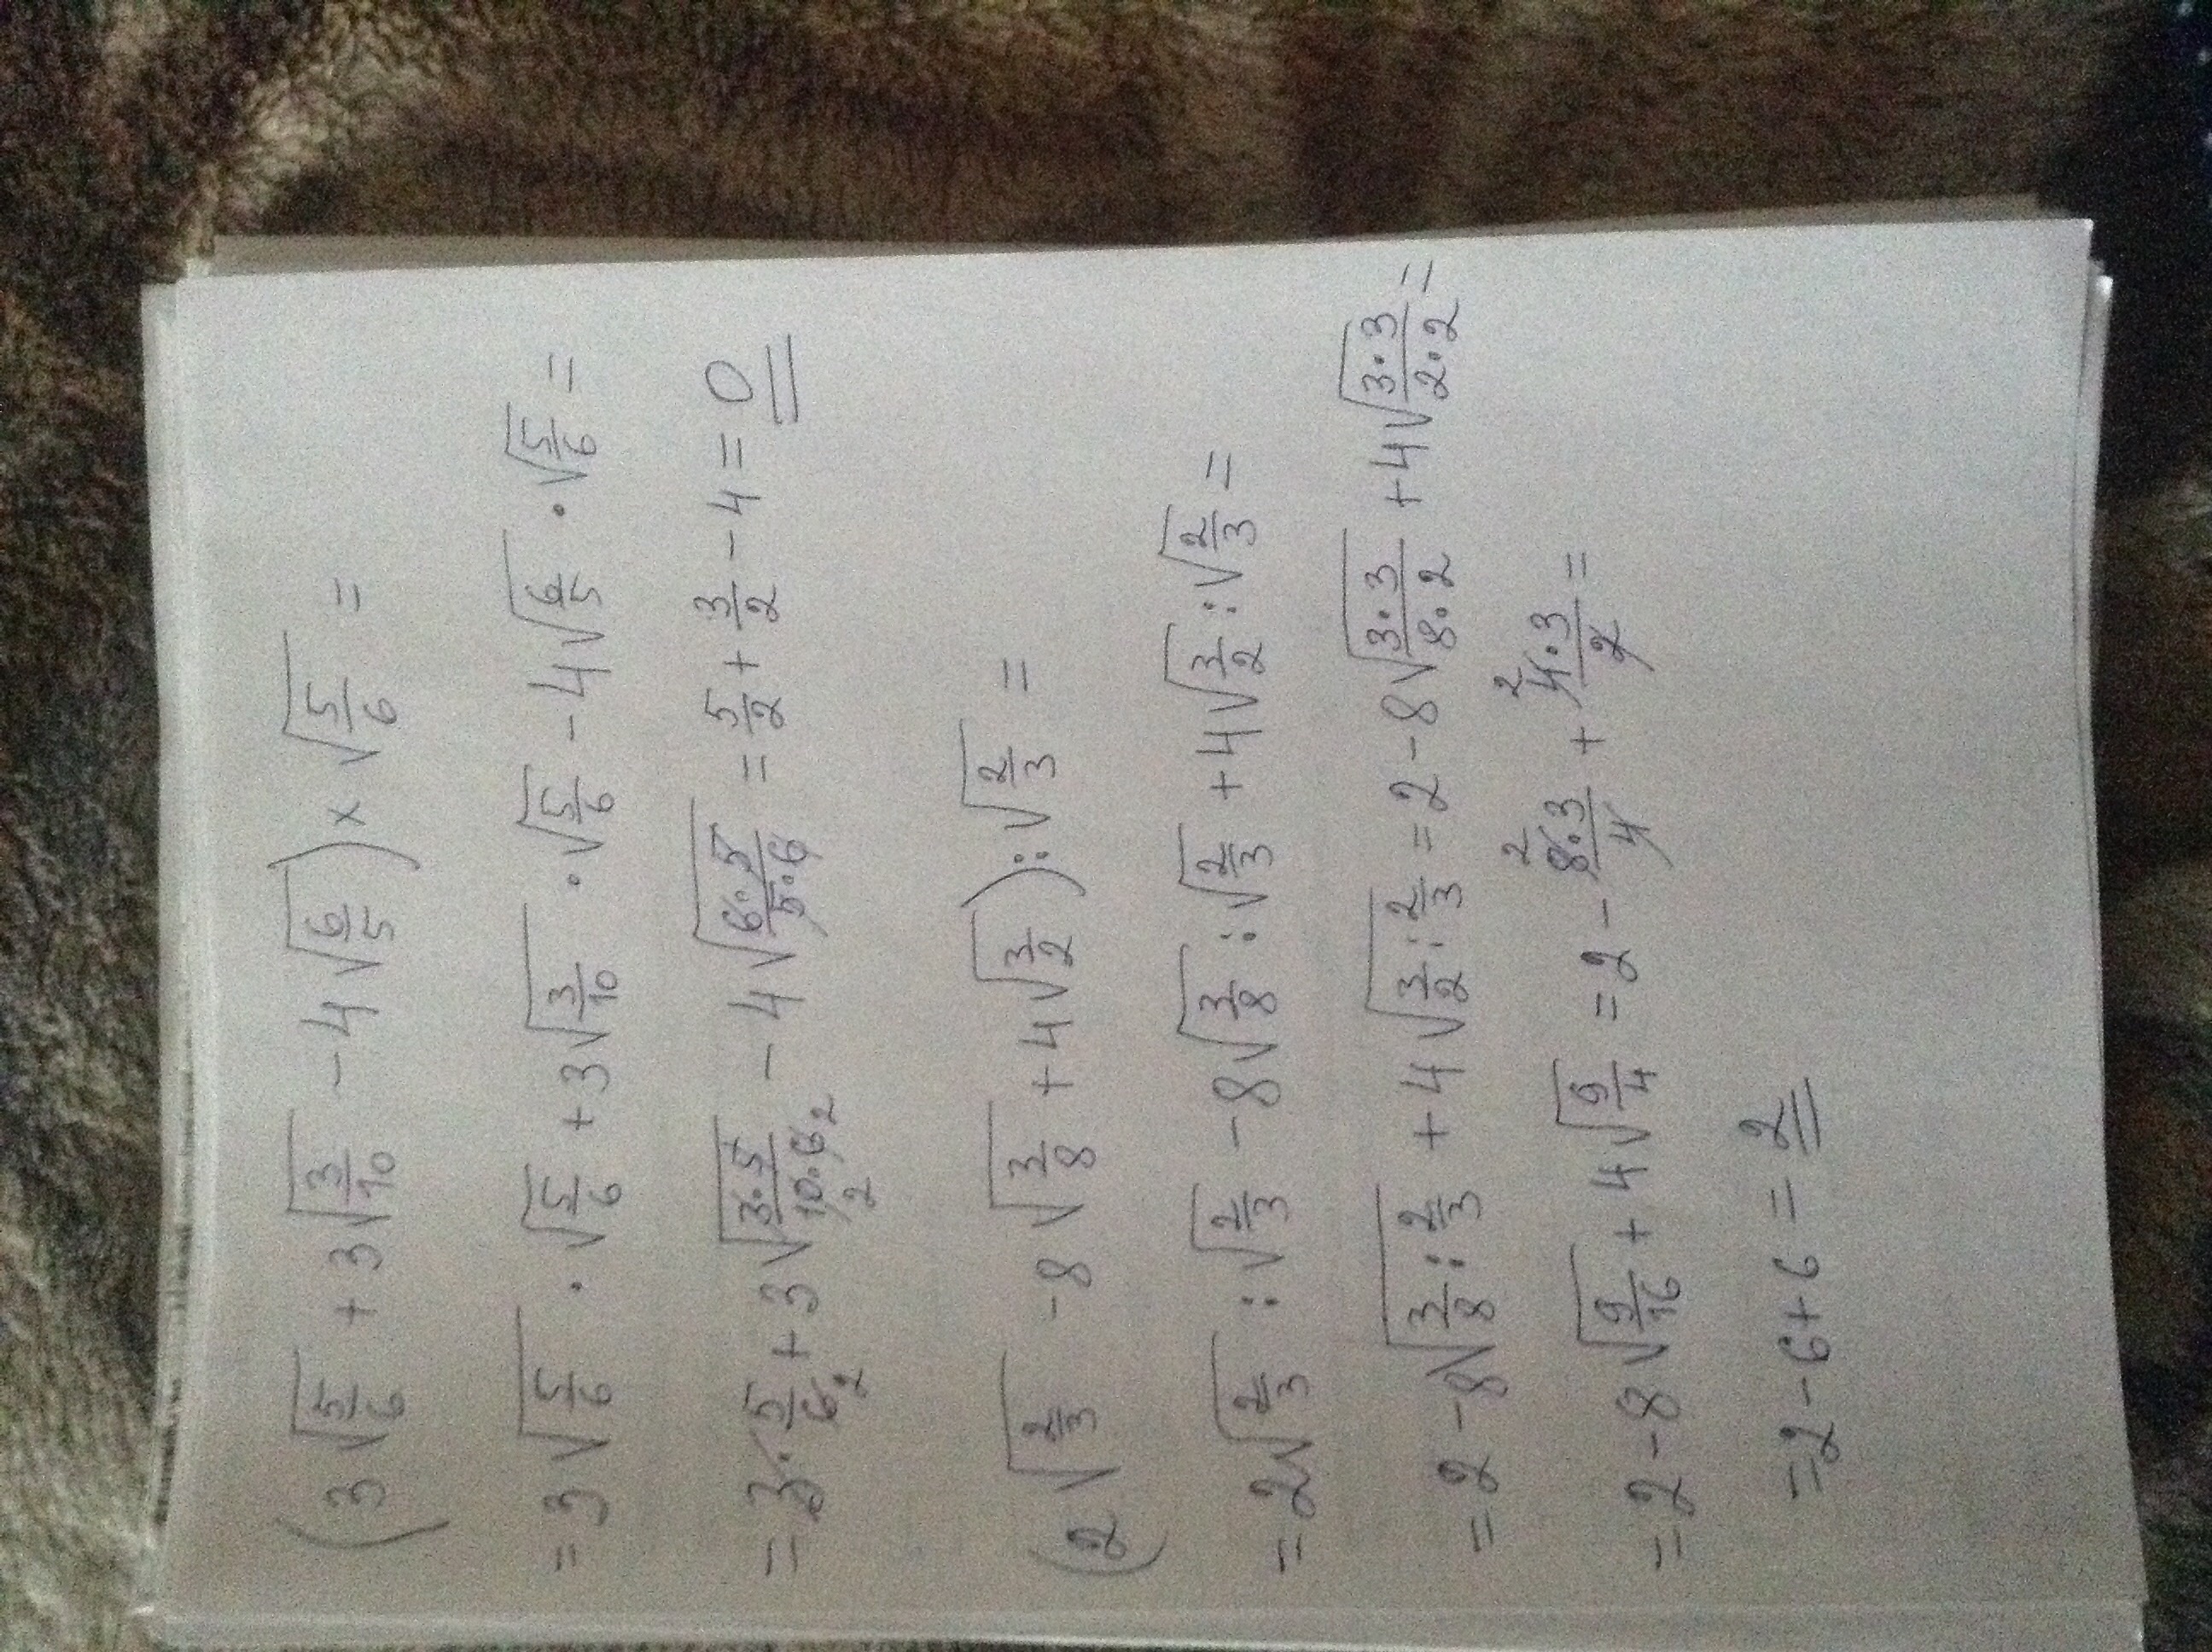 (3√(5/6) + 3√(3/10) - 4√(6/5)) × √(5/6) =
= 3√(5/6) · √(5/6) + 3√(3/10) · √(5/6) - 4√(6/5) · √(5/6) =
= 3 · 5/6 2 + 3√(3·5/10·6) 2 2 - 4√(6·5/5·6) = 5/2 + 3/2 - 4 = 0
(2√(2/3) - 8√(3/8) + 4√(3/2)) : √(2/3) =
= 2√(2/3) : √(2/3) - 8√(3/8) : √(2/3) + 4√(3/2) : √(2/3) =
= 2 - 8√(3/8 : 2/3) + 4√(3/2 : 2/3) = 2 - 8√(3·3/8·2) + 4√(3·3/2·2) =
= 2 - 8√(9/16) + 4√(9/4) = 2 - 2 8·3/4 + 2 4·3/2 =
= 2 - 6 + 6 = 2